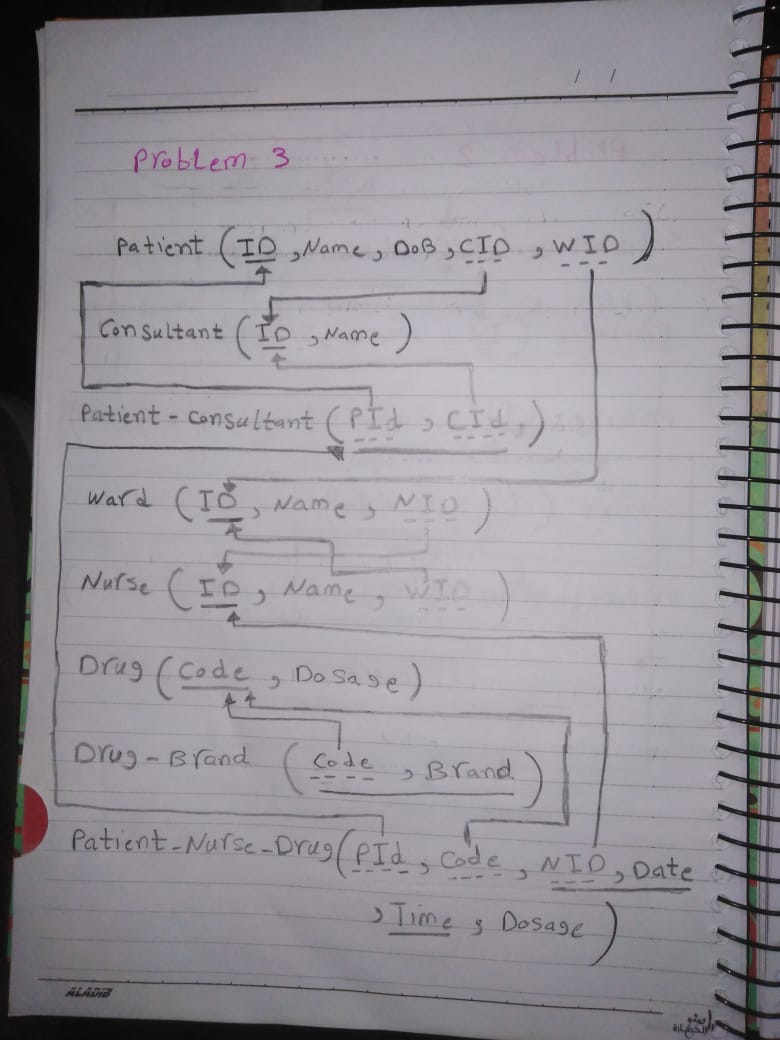 / /
Problem 3
Patient (ID, Name, DoB, CID, WID)
Consultant (ID, Name)
Patient-Consultant (PId, CId,)
Ward (ID, Name, NID)
Nurse (ID, Name, WID)
Drug (Code, Dosage)
Drug-Brand (Code, Brand)
Patient-Nurse-Drug(PId, Code, NID, Date
, Time, Dosage)
ALADIB